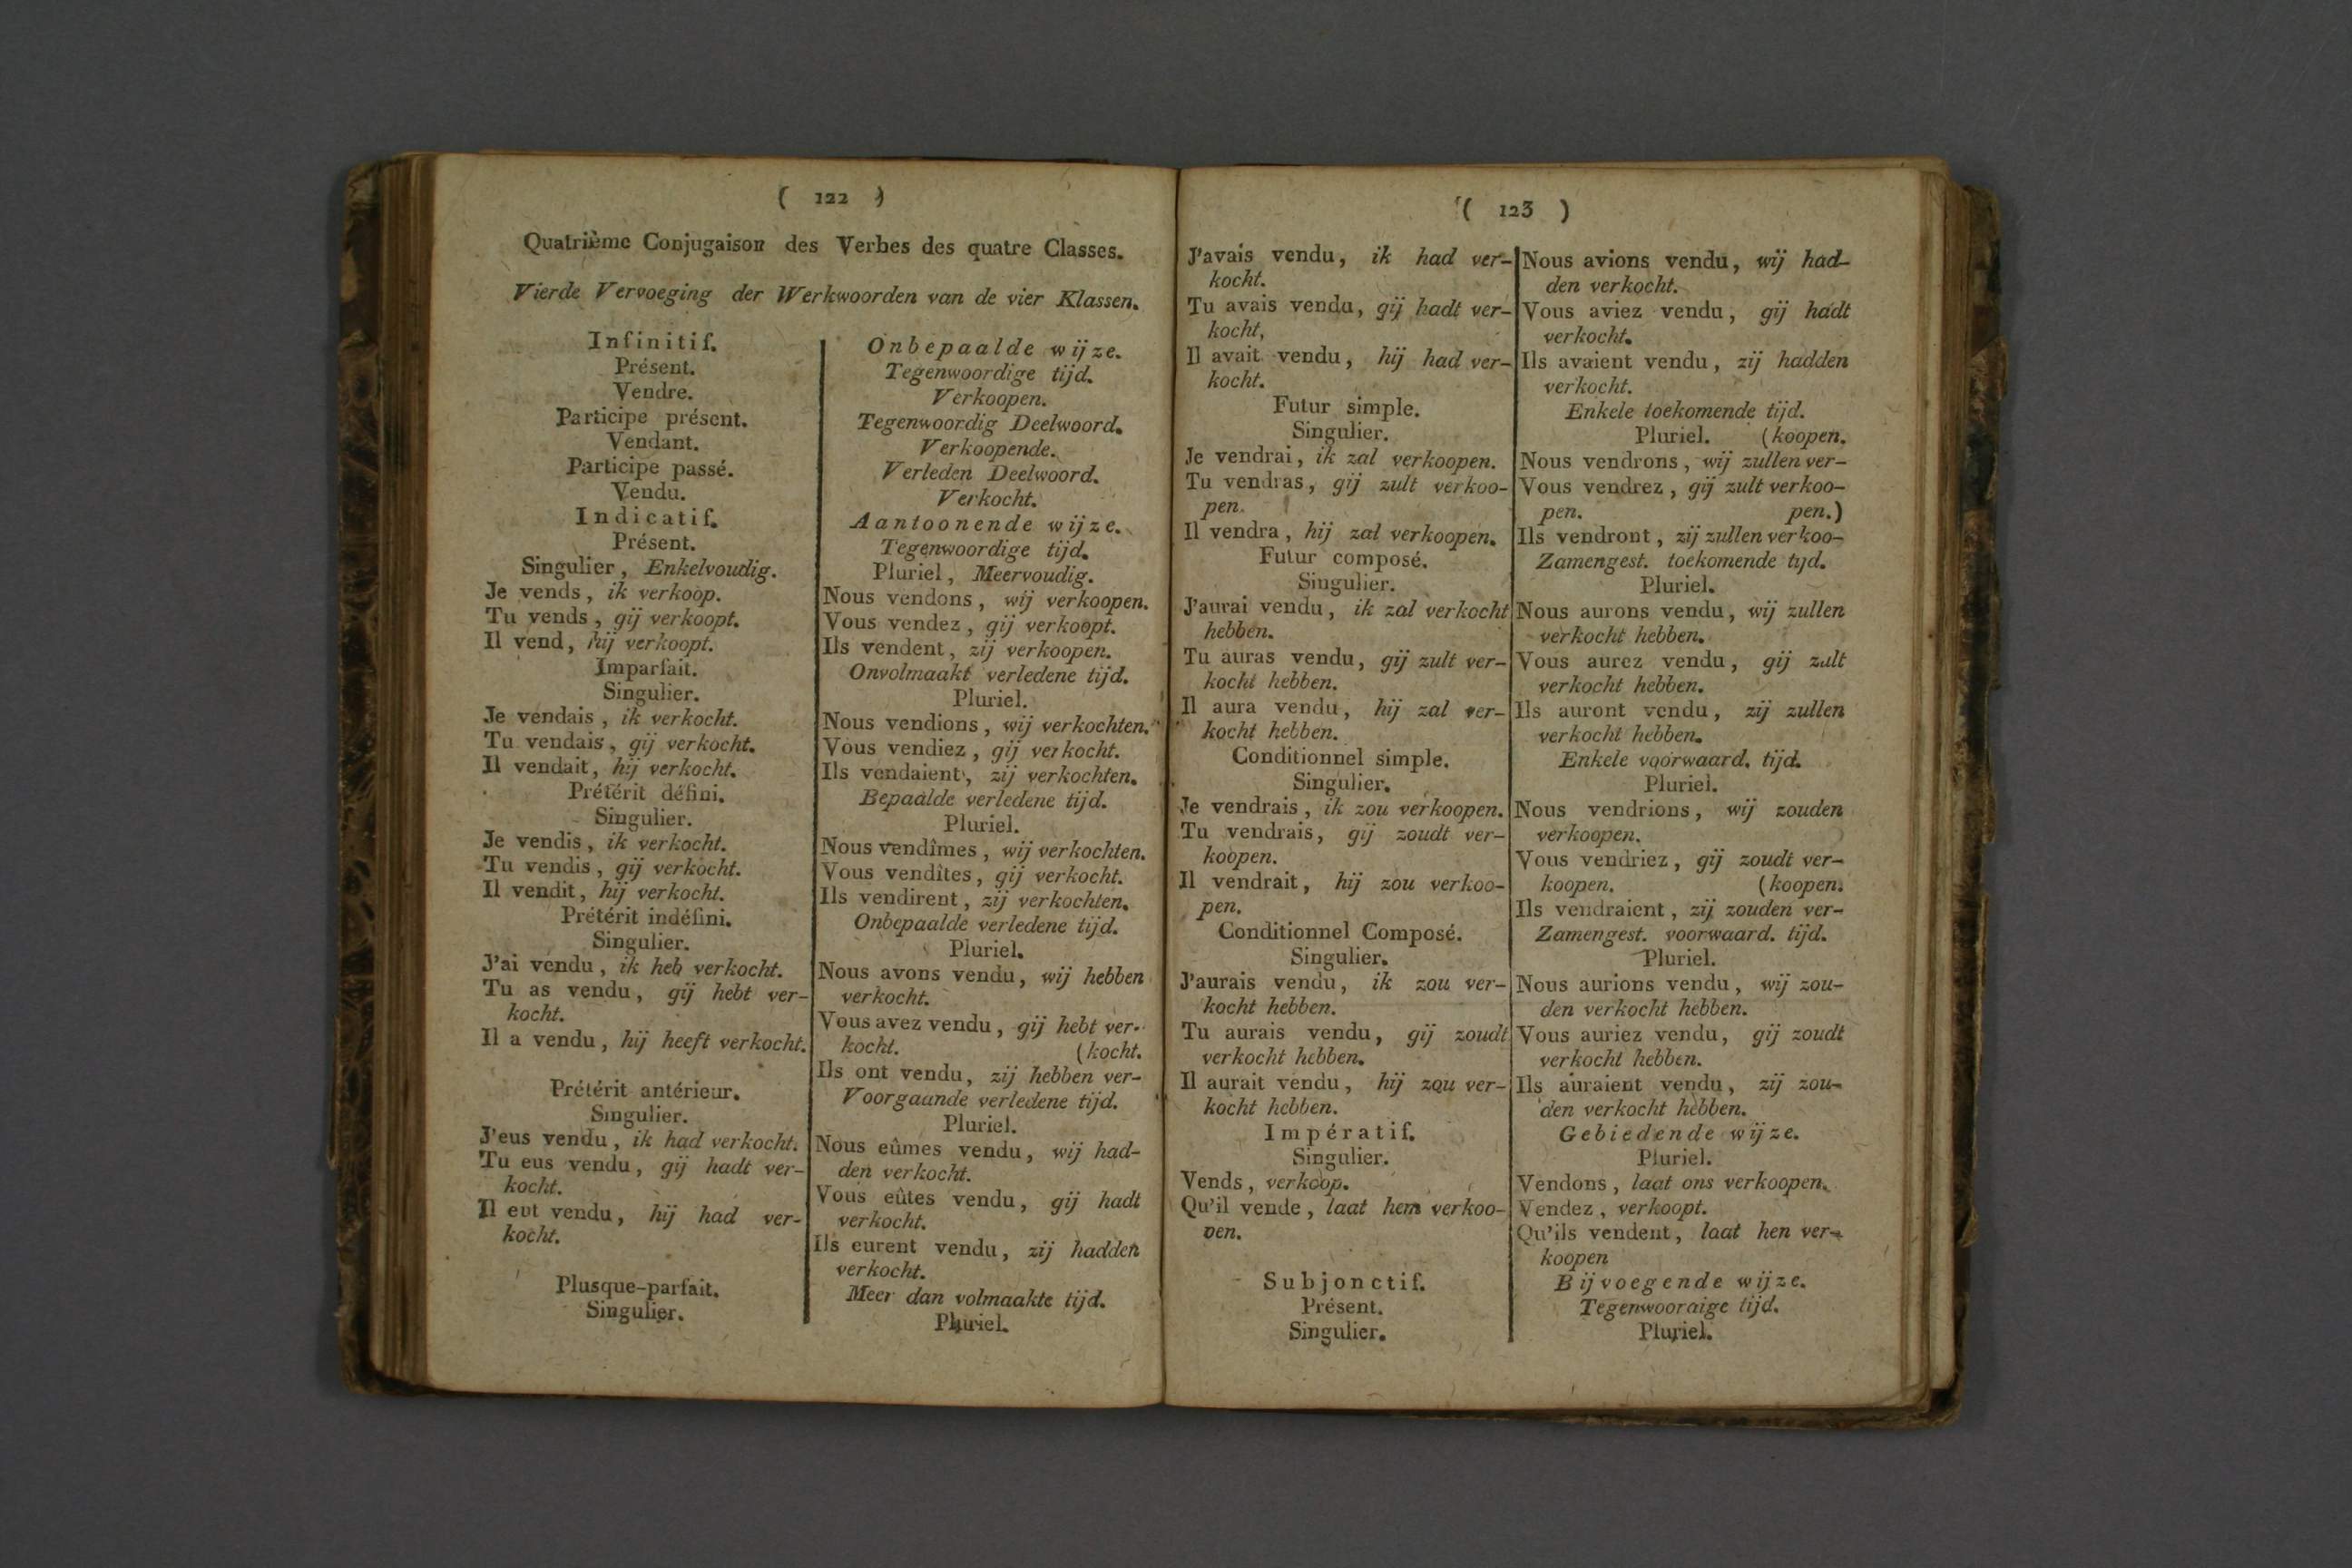 ( 122 )
Quatrième Conjugaison des Verbes des quatre Classes.
Vierde Vervoeging der Werkwoorden van de vier Klassen.
Infinitif.
Présent.
Vendre.
Participe présent.
Vendant.
Participe passé.
Vendu.
Indicatif.
Présent.
Singulier, Enkelvoudig.
Je vends, ik verkoop.
Tu vends, gij verkoopt.
Il vend, hij verkoopt.
Imparfait.
Singulier.
Je vendais, ik verkocht.
Tu vendais, gij verkocht.
Il vendait, hij verkocht.
Prétérit défini.
Singulier.
Je vendis, ik verkocht.
Tu vendis, gij verkocht.
Il vendit, hij verkocht.
Prétérit indéfini.
Singulier.
J'ai vendu, ik heb verkocht.
Tu as vendu, gij hebt ver-
kocht.
Il a vendu, hij heeft verkocht.
Prétérit antérieur.
Singulier.
J'eus vendu, ik had verkocht.
Tu eus vendu, gij hadt ver-
kocht.
Il eut vendu, hij had ver-
kocht.
Plusque-parfait.
Singulier.
Onbepaalde wijze.
Tegenwoordige tijd.
Verkoopen.
Tegenwoordig Deelwoord.
Verkoopende.
Verleden Deelwoord.
Verkocht.
Aantoonende wijze.
Tegenwoordige tijd.
Pluriel, Meervoudig.
Nous vendons, wij verkoopen.
Vous vendez, gij verkoopt.
Ils vendent, zij verkoopen.
Onvolmaakt verledene tijd.
Pluriel.
Nous vendions, wij verkochten.
Vous vendiez, gij verkocht.
Ils vendaient, zij verkochten.
Bepaalde verledene tijd.
Pluriel.
Nous vendîmes, wij verkochten.
Vous vendîtes, gij verkocht.
Ils vendirent, zij verkochten.
Onbepaalde verledene tijd.
Pluriel.
Nous avons vendu, wij hebben
verkocht.
Vous avez vendu, gij hebt ver-
kocht. (kocht.
Ils ont vendu, zij hebben ver-
Voorgaande verledene tijd.
Pluriel.
Nous eûmes vendu, wij had-
den verkocht.
Vous eûtes vendu, gij hadt
verkocht.
Ils eurent vendu, zij hadden
verkocht.
Meer dan volmaakte tijd.
Pluriel.
( 123 )
J'avais vendu, ik had ver-
kocht.
Tu avais vendu, gij hadt ver-
kocht,
Il avait vendu, hij had ver-
kocht.
Futur simple.
Singulier.
Je vendrai, ik zal verkoopen.
Tu vendras, gij zult verkoo-
pen.
Il vendra, hij zal verkoopen.
Futur composé.
Singulier.
J'aurai vendu, ik zal verkocht
hebben.
Tu auras vendu, gij zult ver-
kocht hebben.
Il aura vendu, hij zal ver-
kocht hebben.
Conditionnel simple.
Singulier.
Je vendrais, ik zou verkoopen.
Tu vendrais, gij zoudt ver-
koopen.
Il vendrait, hij zou verkoo-
pen.
Conditionnel Composé.
Singulier.
J'aurais vendu, ik zou ver-
kocht hebben.
Tu aurais vendu, gij zoudt
verkocht hebben.
Il aurait vendu, hij zou ver-
kocht hebben.
Impératif.
Singulier.
Vends, verkoop.
Qu'il vende, laat hem verkoo-
pen.
Subjonctif.
Présent.
Singulier.
Nous avions vendu, wij had-
den verkocht.
Vous aviez vendu, gij hadt
verkocht.
Ils avaient vendu, zij hadden
verkocht.
Enkele toekomende tijd.
Pluriel. (koopen.
Nous vendrons, wij zullen ver-
Vous vendrez, gij zult verkoo-
pen. pen.)
Ils vendront, zij zullen verkoo-
Zamengest. toekomende tijd.
Pluriel.
Nous aurons vendu, wij zullen
verkocht hebben.
Vous aurez vendu, gij zult
verkocht hebben.
Ils auront vendu, zij zullen
verkocht hebben.
Enkele voorwaard. tijd.
Pluriel.
Nous vendrions, wij zouden
verkoopen.
Vous vendriez, gij zoudt ver-
koopen. (koopen.
Ils vendraient, zij zouden ver-
Zamengest. voorwaard. tijd.
Pluriel.
Nous aurions vendu, wij zou-
den verkocht hebben.
Vous auriez vendu, gij zoudt
verkocht hebben.
Ils auraient vendu, zij zou-
den verkocht hebben.
Gebiedende wijze.
Pluriel.
Vendons, laat ons verkoopen.
Vendez, verkoopt.
Qu'ils vendent, laat hen ver-
koopen
Bijvoegende wijze.
Tegenwoordige tijd.
Pluriel.